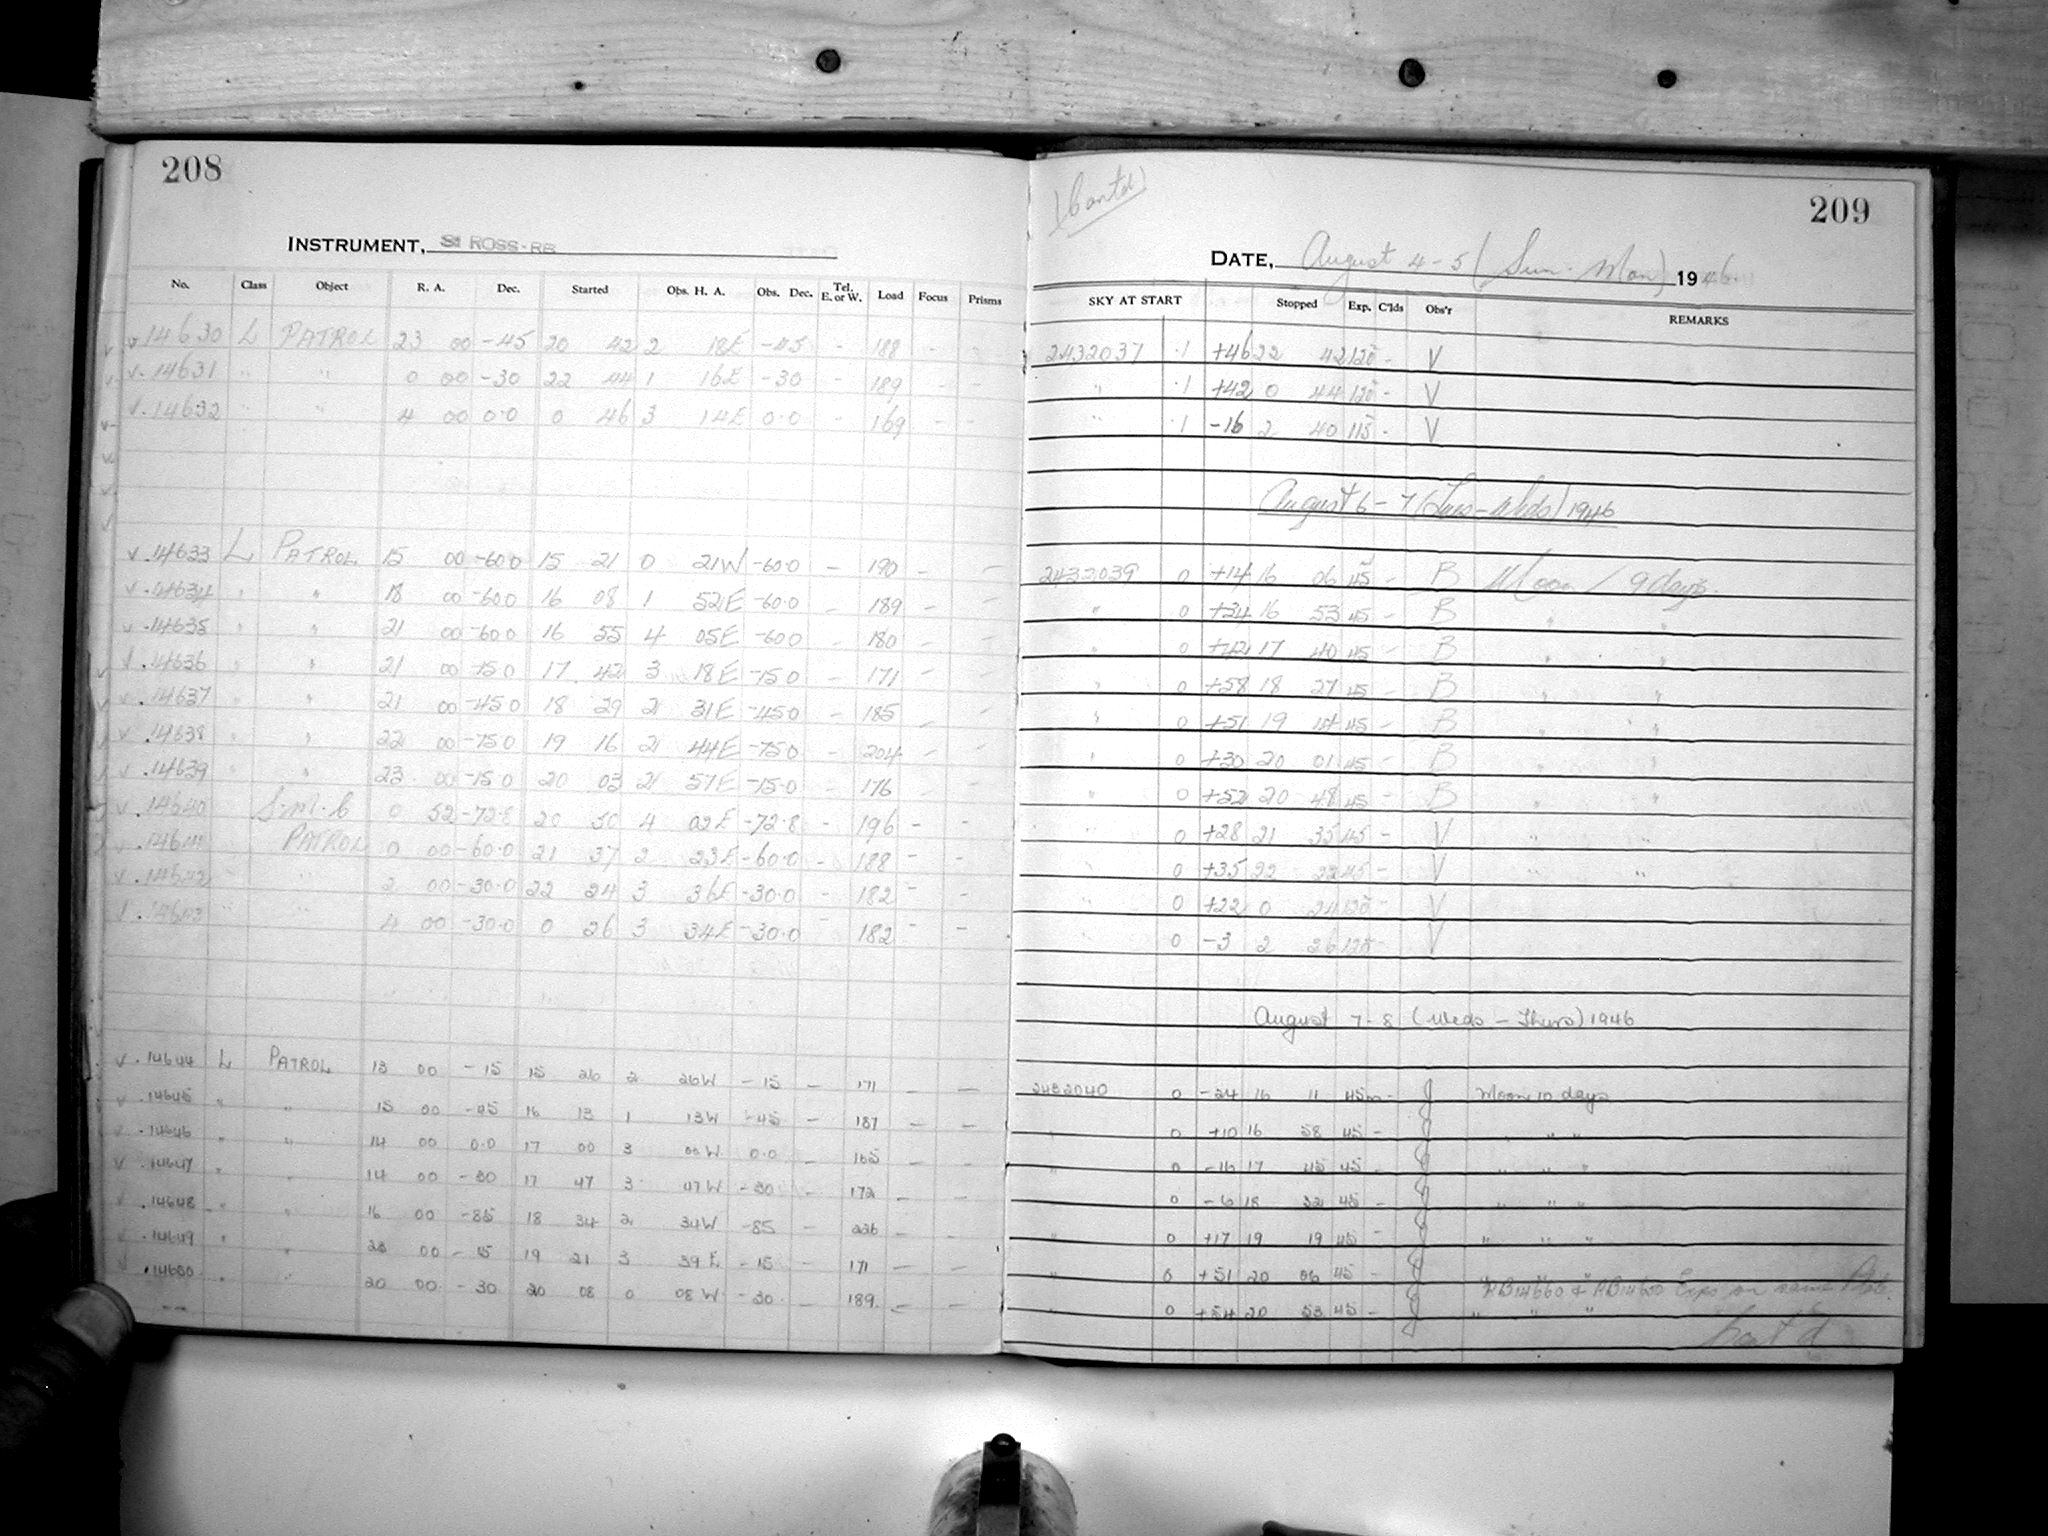 208
INSTRUMENT, ROSS-RB
No. Class Object R. A. Dec. Started Obs. H. A. Obs. Dec. Tel. E. or W. Load Focus Prisms
v 14630 L PATROL 23 00 -45 20 42 2 18E -45 - 188 - -
v. 14631 " " 0 00 -30 22 44 1 16E -30 - 189 - -
v. 14632 " " 4 00 0.0 0 46 3 14E 0.0 - 169 - -
v .14633 L PATROL 15 00 -60.0 15 21 0 21W -60.0 - 190 - -
v .14634 " " 18 00 -60.0 16 08 1 52E -60.0 - 189 - -
v .14635 " " 21 00 -60.0 16 55 4 05E -60.0 - 180 - -
.14636 " " 21 00 -15.0 17 42 3 18E -15.0 - 171 - -
v .14637 " " 21 00 -45.0 18 29 2 31E -45.0 - 185 - -
v .14638 " " 22 00 -75.0 19 16 2 44E -75.0 - 204 - -
v .14639 " " 23 00 -15.0 20 03 2 57E -15.0 - 176 - -
v .14640 S.M.C 0 52 -72.8 20 50 4 02E -72.8 - 196 - -
PATROL 0 00 -60.0 21 37 2 23E -60.0 - 188 - -
v .14642 " 2 00 -30.0 22 24 3 36E -30.0 - 182 - -
.14643 " " 4 00 -30.0 0 26 3 34E -30.0 - 182 - -
v .14644 L PATROL 13 00 -15 15 26 2 26W -15 - 171 - -
v .14645 " " 15 00 -45 16 13 1 13W -45 - 187 - -
.14646 " " 14 00 0.0 17 00 3 00W 0.0 - 165 - -
v .14647 " " 14 00 -30 17 47 3 47W -30 - 172 - -
v .14648 " " 16 00 -85 18 34 2 34W -85 - 226 - -
.14649 " " 23 00 -15 19 21 3 39E -15 - 171 - -
.14650 " 20 00 -30 20 08 0 08W -30 - 189 - -
(Contd)
209
DATE, August 4-5 (Sun-Mon) 1946
SKY AT START Stopped Exp. C'lds Obs'r REMARKS
2432037 .1 +46 22 42 120 - V
" .1 +42 0 44 120 - V
" .1 -16 2 40 115 - V
August 6-7 (Tues-Weds) 1946
2432039 0 +14 16 06 45 - B Moon / 9 days.
" 0 +34 16 53 45 - B " "
" 0 17 40 45 - B " "
" 0 +58 18 27 45 - B " "
" 0 +51 19 14 45 - B " "
" 0 +30 20 01 45 - B " "
" 0 +52 20 48 45 - B " "
" 0 +28 21 35 45 - V " "
" 0 +35 22 22 45 - V " "
" 0 +22 0 24 120 - V
0 -3 2 26 120 - V
August 7-8 (Weds-Thurs) 1946
2432040 0 -24 16 11 45m - J Moon 10 days
" 0 +10 16 58 45 - J " " "
" 0 -16 17 45 45 - J " " "
0 -6 18 32 45 - J " " "
" 0 +17 19 19 45 - J " " "
" 0 +51 20 06 45 - J " "
" 0 +54 20 53 45 - J " " "
Exps on same Plate.
Cont'd